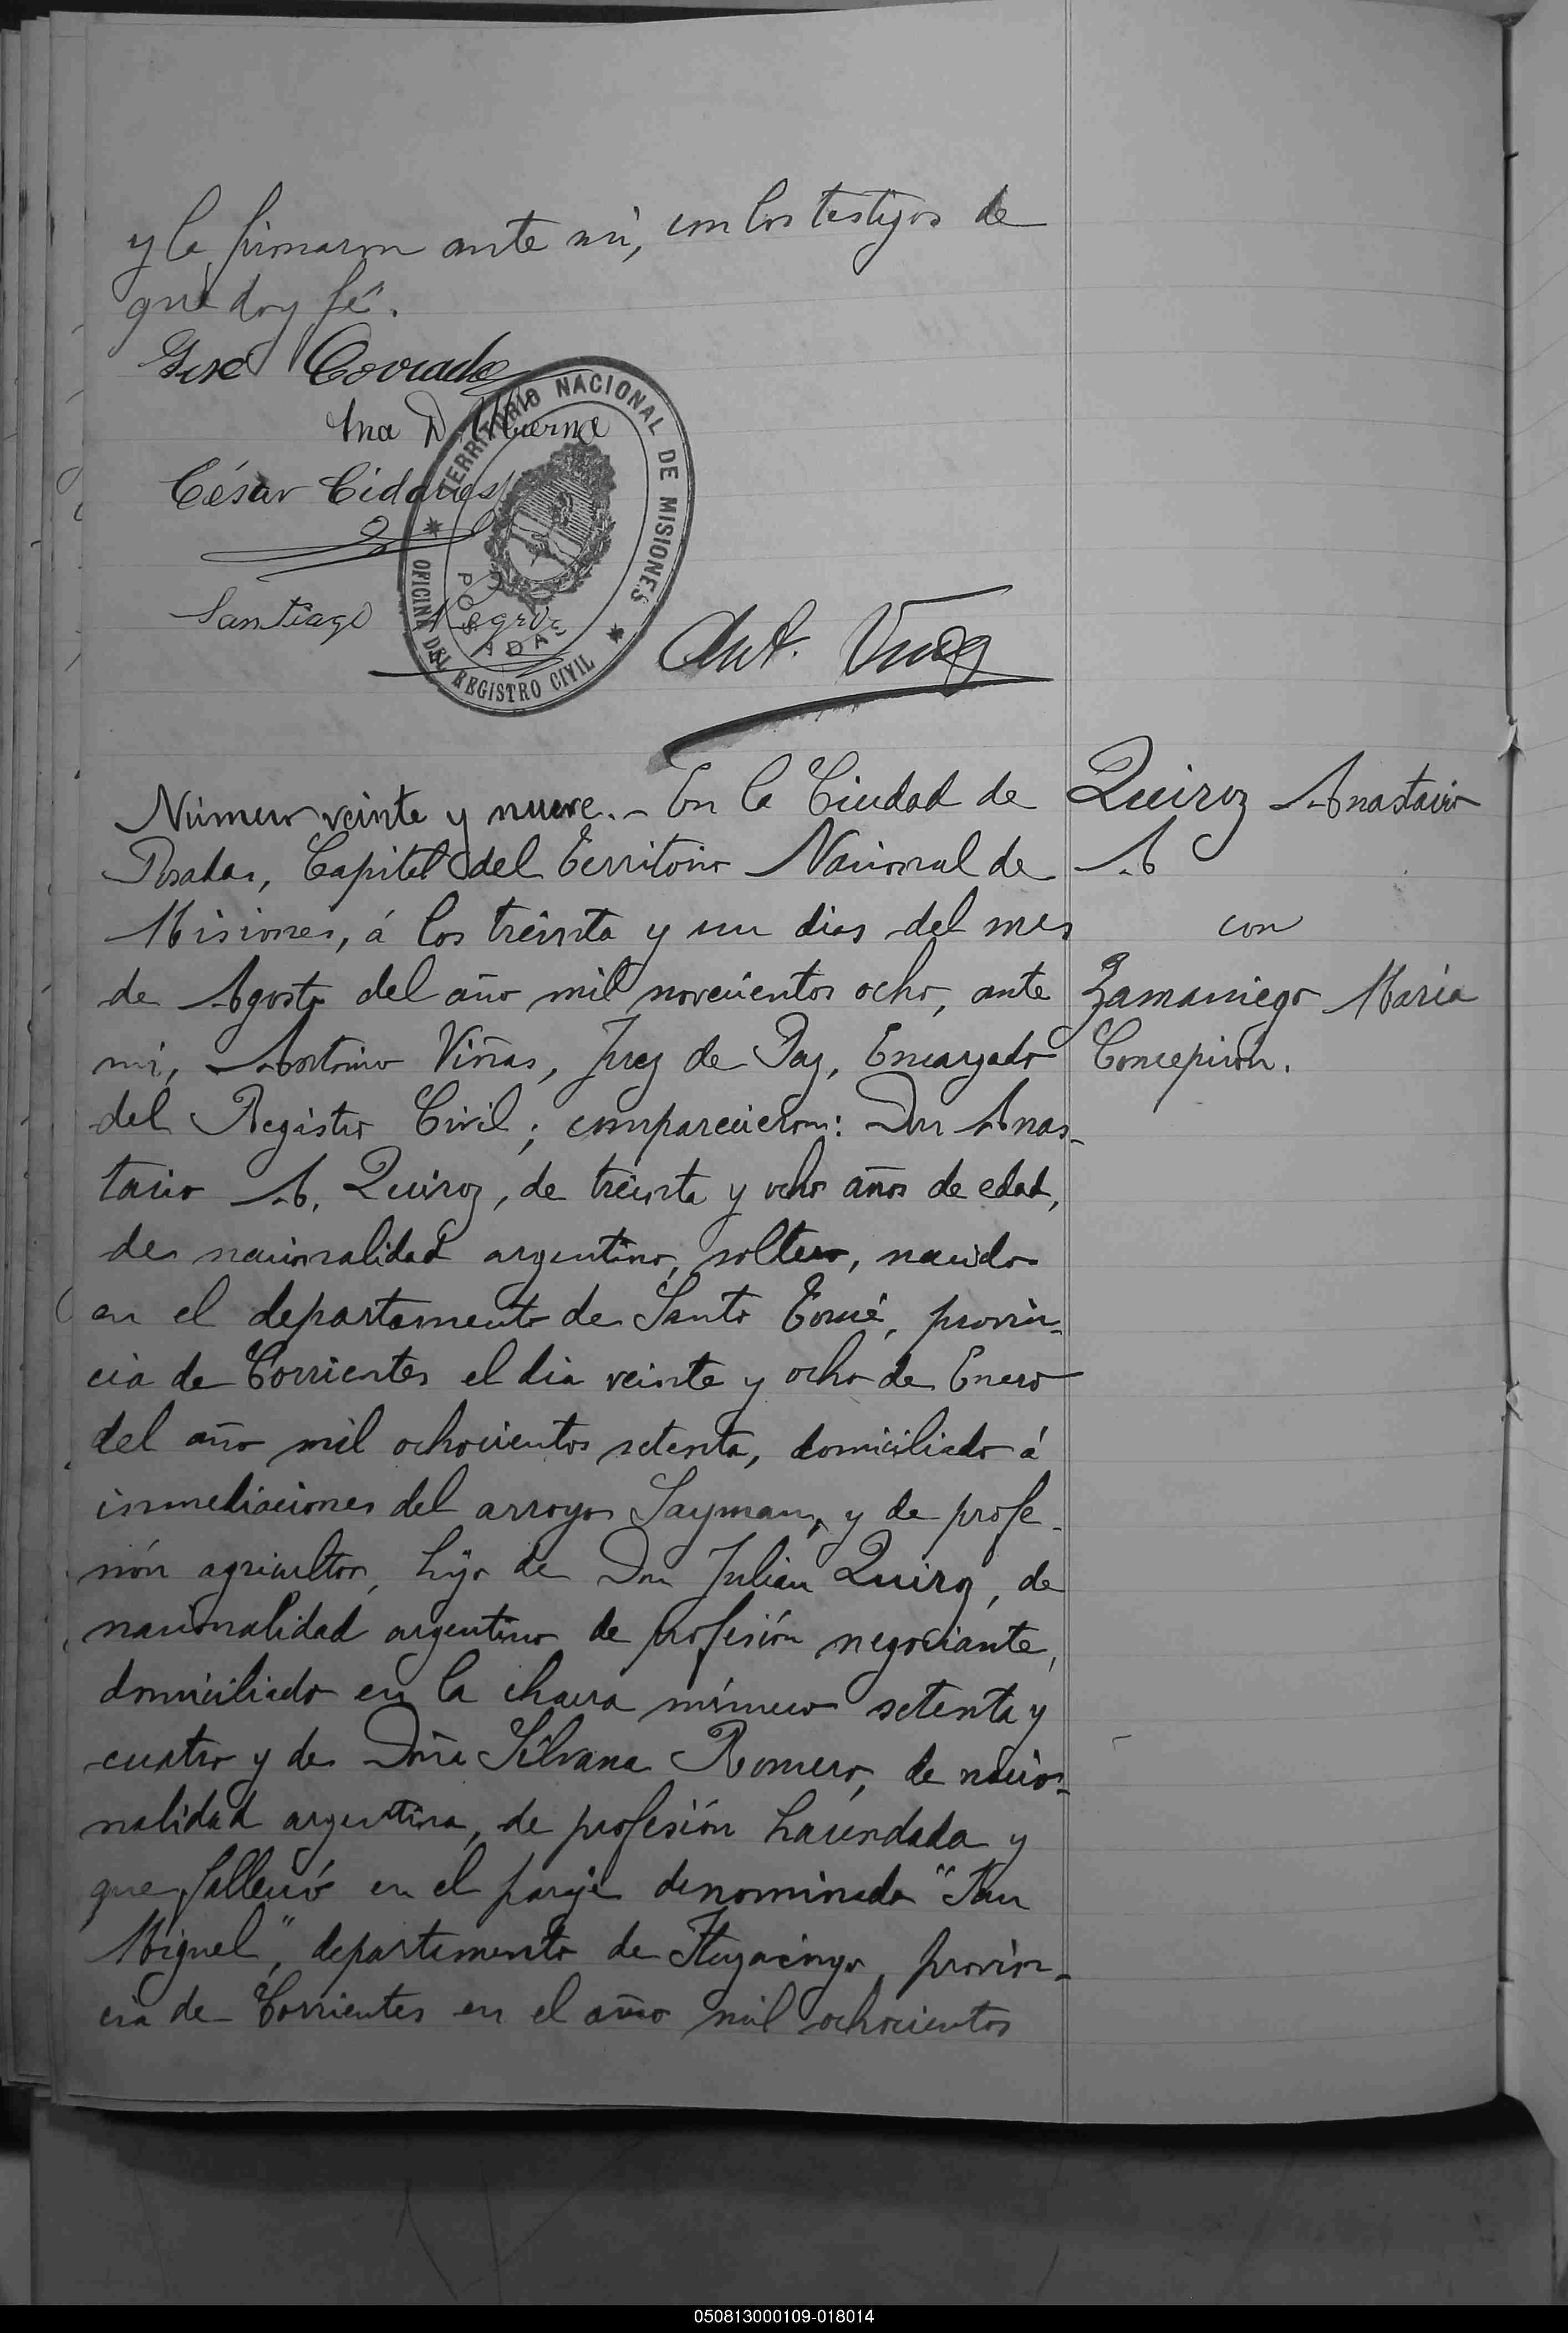 y la firmaron ante mí, con los testigos de
que doy fé.
José Corrado
Ana D
César
Santiago Negro
TERRITORIO NACIONAL DE MISIONES
OFICINA DEL REGISTRO CIVIL
POSADAS
Ant. Viñas
Número veinte y nueve.- En la Ciudad de
Posadas, Capital del Territorio Nacional de
Misiones, á los treinta y un dias del mes
de Agosto del año mil novecientos ocho, ante
mí, Antonio Viñas, Juez de Paz, Encargado
del Registro Civil; comparecieron: Don Anas-
tacio M. Quiroz, de treinta y ocho años de edad,
de nacionalidad argentino, soltero, nacido
en el departamento de Santo Tomé, provin-
cia de Corrientes el dia veinte y ocho de Enero
del año mil ochocientos setenta, domiciliado á
inmediaciones del arroyo Sayman, y de profe-
sión agricultor, hijo de Don Julian Quiroz, de
nacionalidad argentino de profesión negociante,
domiciliado en la chacra número setenta y
cuatro y de Doña Silvana Romero, de nacio-
nalidad argentina, de profesión hacendada y
que falleció en el paraje denominado "San
Miguel", departamento de Ituzaingo, provin-
cia de Corrientes en el año mil ochocientos
Quiroz Anastacio
M
con
Zamaniego María
Concepción.
050813000109-018014